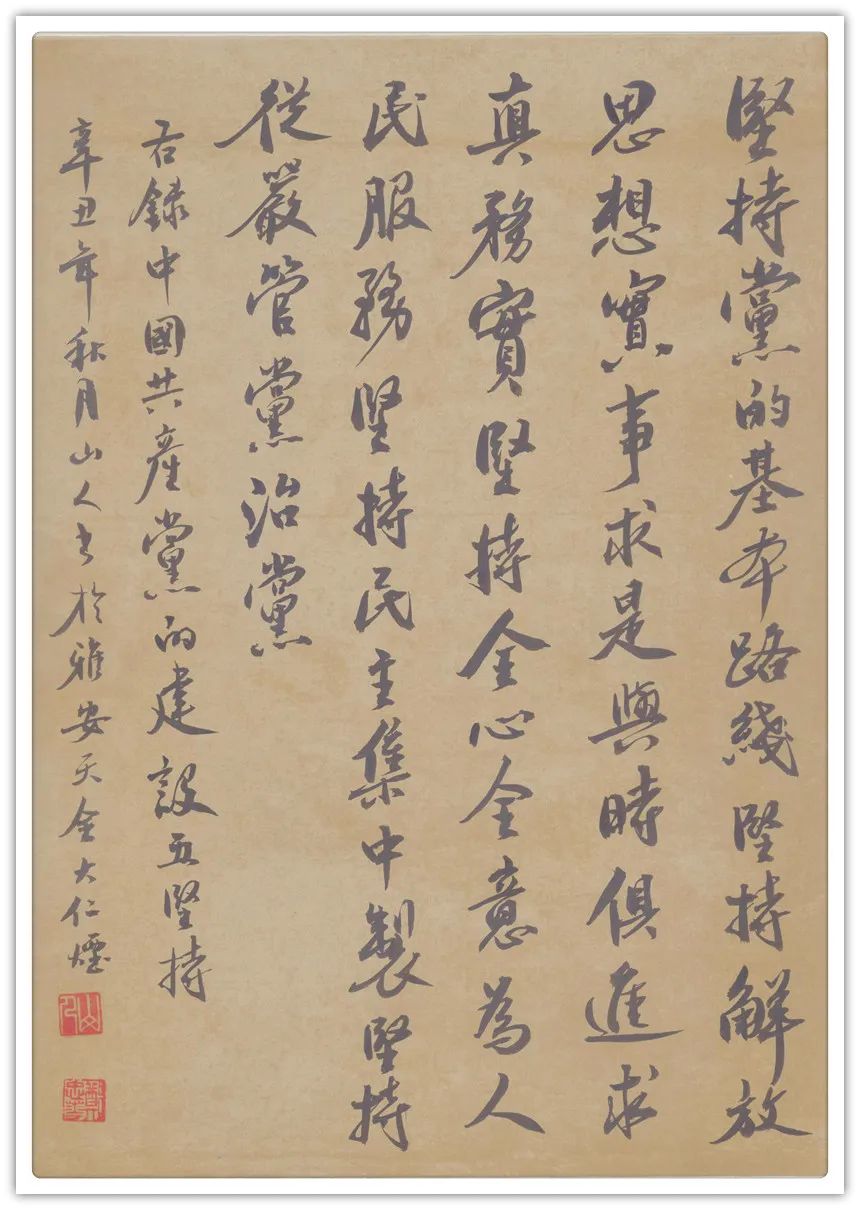 堅持黨的基本路綫堅持解放
思想實事求是與時俱進求
真務實堅持全心全意為人
民服務堅持民主集中製堅持
從嚴管黨治黨
右錄中國共產黨的建設五堅持
辛丑年秋月山人書於雅安天全大仁煙
山人